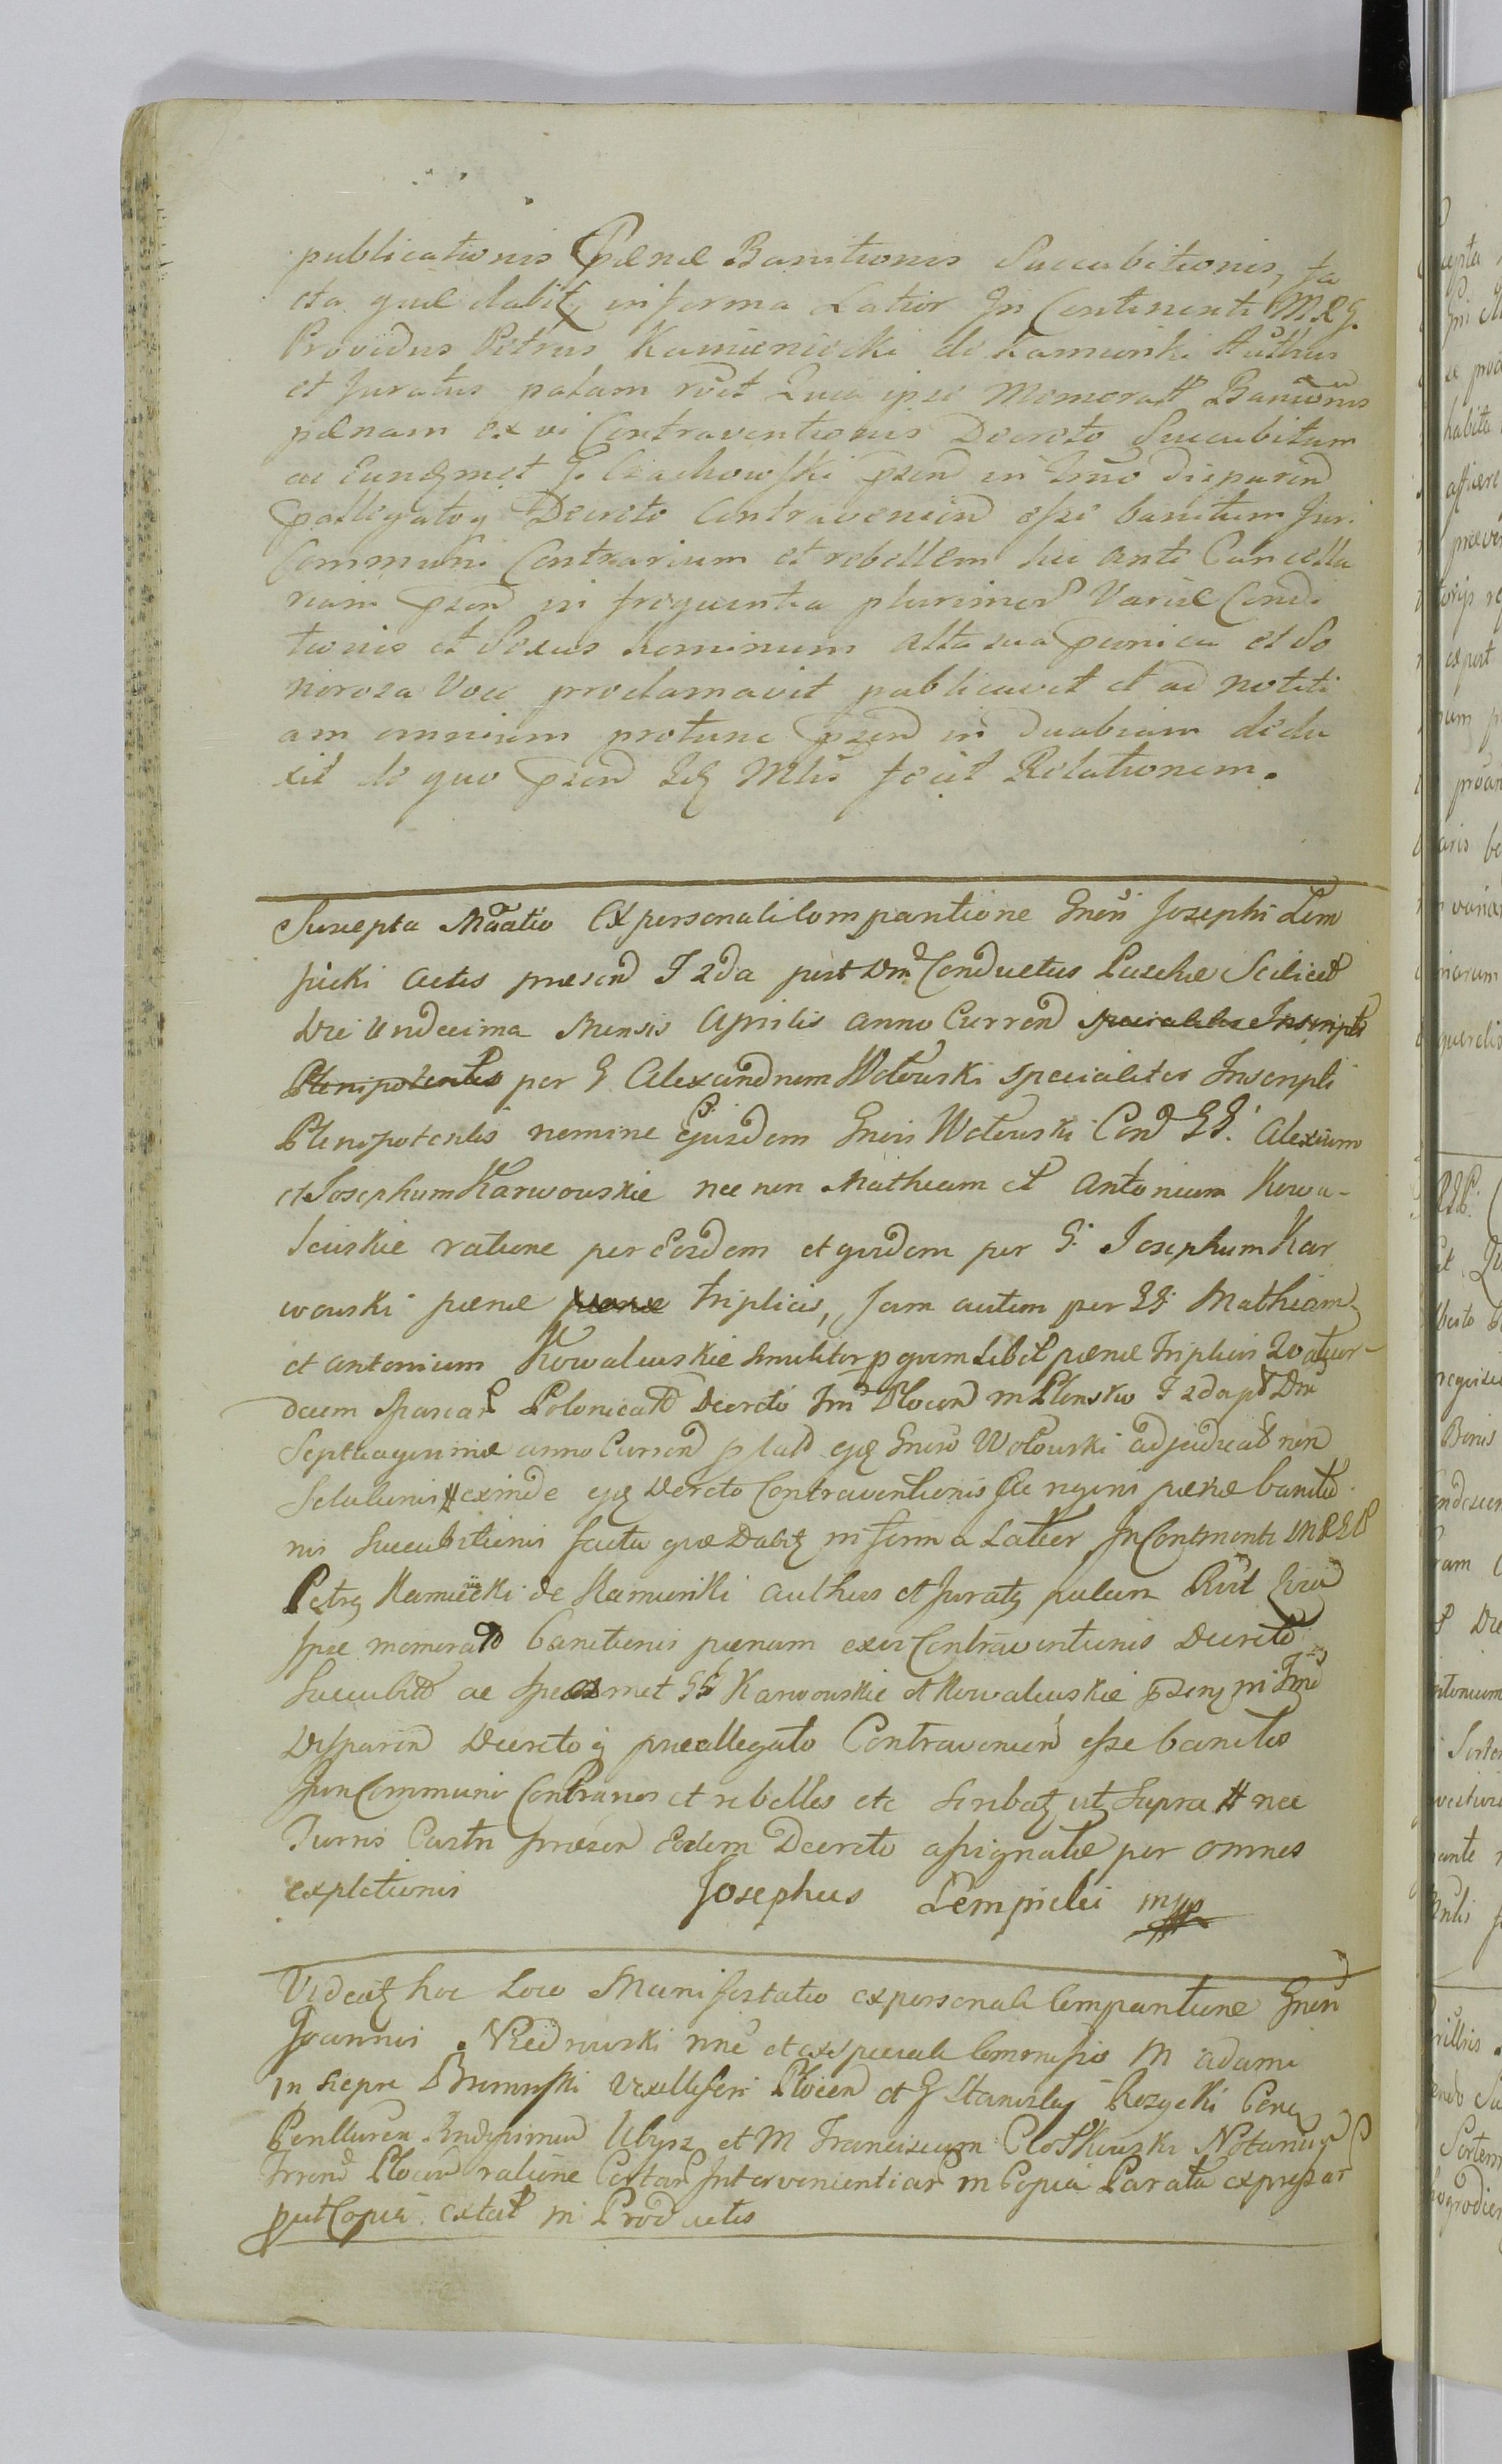 publicationis Pænæ Banitionis Succubitionis, fa
cta quæ dabitz in forma Latior In Continenti M R G.
Providus Petrus Kamieniecki de Kamionki Authus
et Juratus palam rvit Quia ipse Memoratt Banionis
pænam ex vi Contraventionis Decreto Succubitum
ac Eundmet G. Czachowski pzend in Trno disparend
pallegatoq Decreto Contravenien esse banitum Juri
Communi Contrarium et rebellem hic ante Cancella
riam pzend in frequentia plurimor Variæ Condi
tionis et Sexus hominum alta sua punica et So
noroza Voce proclamavit publicavit et ad notiti
am omnium protunc pzend in duabium dedu
xit de quo pzend Idz Mlis fecit Relationem.
Suscepta Maatio Ex personali Comparitione Gnesi Josephi Lem
picki actis præsend F 2da post Dm Conductus Paschæ Scilicet
Die Undecima Mensis Aprilis anno Currend specialiter Inscripti
Plenipotentis per G Alexandrum Wołowski specialiter Inscripti
Plenipotentis nomine Ejusdem Gnesi Wołowski Cond GG. Alexium
et Josephum Karwowskie nec non Mathæum et Antonium Kowa-
lewskie ratione per Eosdem et quidem per G. Josephum Kar
wowski pænæ triplicis, Jam autem per GG Mathiam
et Antonium Kowalewskie similiter p quemlibet pænæ triplicis Quatuor-
decim Marcar Polonicalt Decreto Trri Plocen in Płonsko F 2da pt Dm
Septuagesimæ anno Currend p latt ejq Gneso Wołowski adjudicat non
Solutionis # exinde ejq Decreto Contraventionis Ac regeni pænæ banitio
nis Succubitionis facta quæ Dabitz in forma Latior In Continenti M R G P
Petrq Kamieniecki de Kamionki authus et Juratq palam Rvit Quia
Ipse memoratt banitionis pænam ex vi Contraventionis Decreto
Succubitt ac Ipsosmet GG Karwowskie et Kowalewskie pzenq in Trno
Disparen Decreto q præallegato Contravenien esse banitos
Juri Communi Contrarios et rebelles etc Scribatz utz Supra # nec
Turris Castri præsen Eodem Decreto assignatæ per omnes
expletionis Josephus Łempicki mpp
Videatz hoc Loco Manifestatio ex personali Comparitione Gnesi
Joannis Niedrowski nne et ex speciali Commisso M Adami
in Siepre Bromirski Vexilliferi Plocen et G Stanislaq Rozycki
et M Franciscum Notariuq
Trrend Plocen ratione Certar Intervenientiar in Copia Parata expressar
put Copia extat in Productis